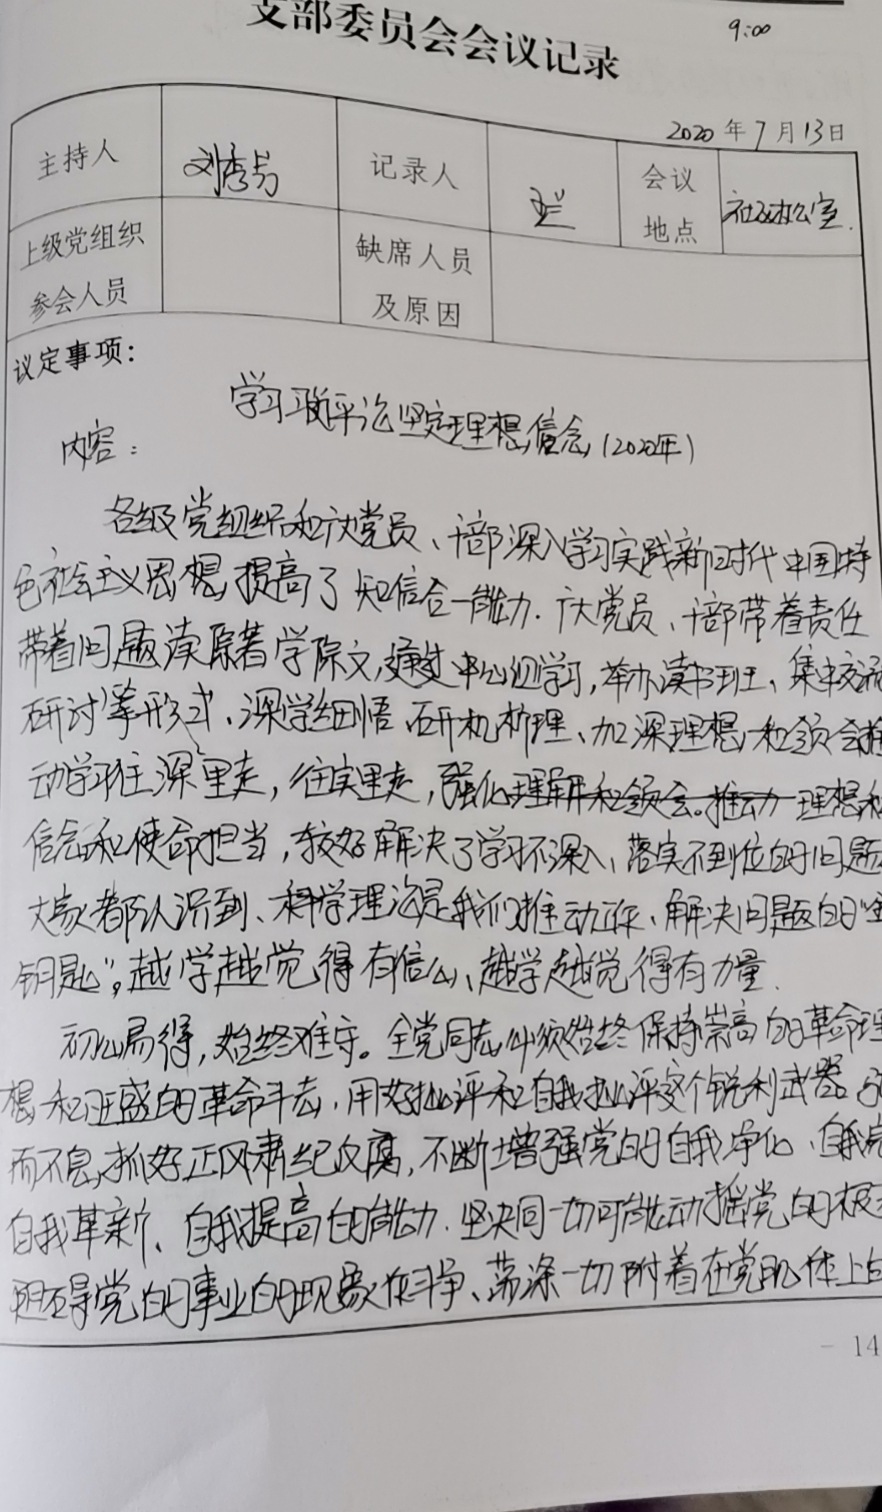 支部委员会会议记录
9:00
2020年7月13日
主持人 刘秀芳 记录人 会议地点 社区办公室.
上级党组织参会人员 缺席人员及原因
议定事项:
学习习近平论坚定理想信念(2020年)
内容:
各级党组织和广大党员、干部深入学习实践新时代中国特
色社会主义思想,提高了知信合一能力.广大党员、干部带着责任
带着问题读原著学原文,通过中心组学习,举办读书班、集中交流
研讨等形式、深学细悟、研机析理、加深理想和领会推
动学习往深里走,往实里走,强化理解和领会。推动理想和
信念和使命担当,较好解决了学习不深入、落实不到位的问题
大家都认识到、科学理论是我们推动工作、解决问题的“金
钥匙”,越学越觉得有信心、越学越觉得有力量.
初心易得,始终难守。全党同志必须始终保持崇高的革命理
想和旺盛的革命斗志,用好批评和自我批评这个锐利武器
而不息,抓好正风肃纪反腐,不断增强党的自我净化、自我完
自我革新、自我提高的能力.坚决同一切可能动摇党的根
阻碍党的事业的现象作斗争、荡涤一切附着在党肌体上的
- 14